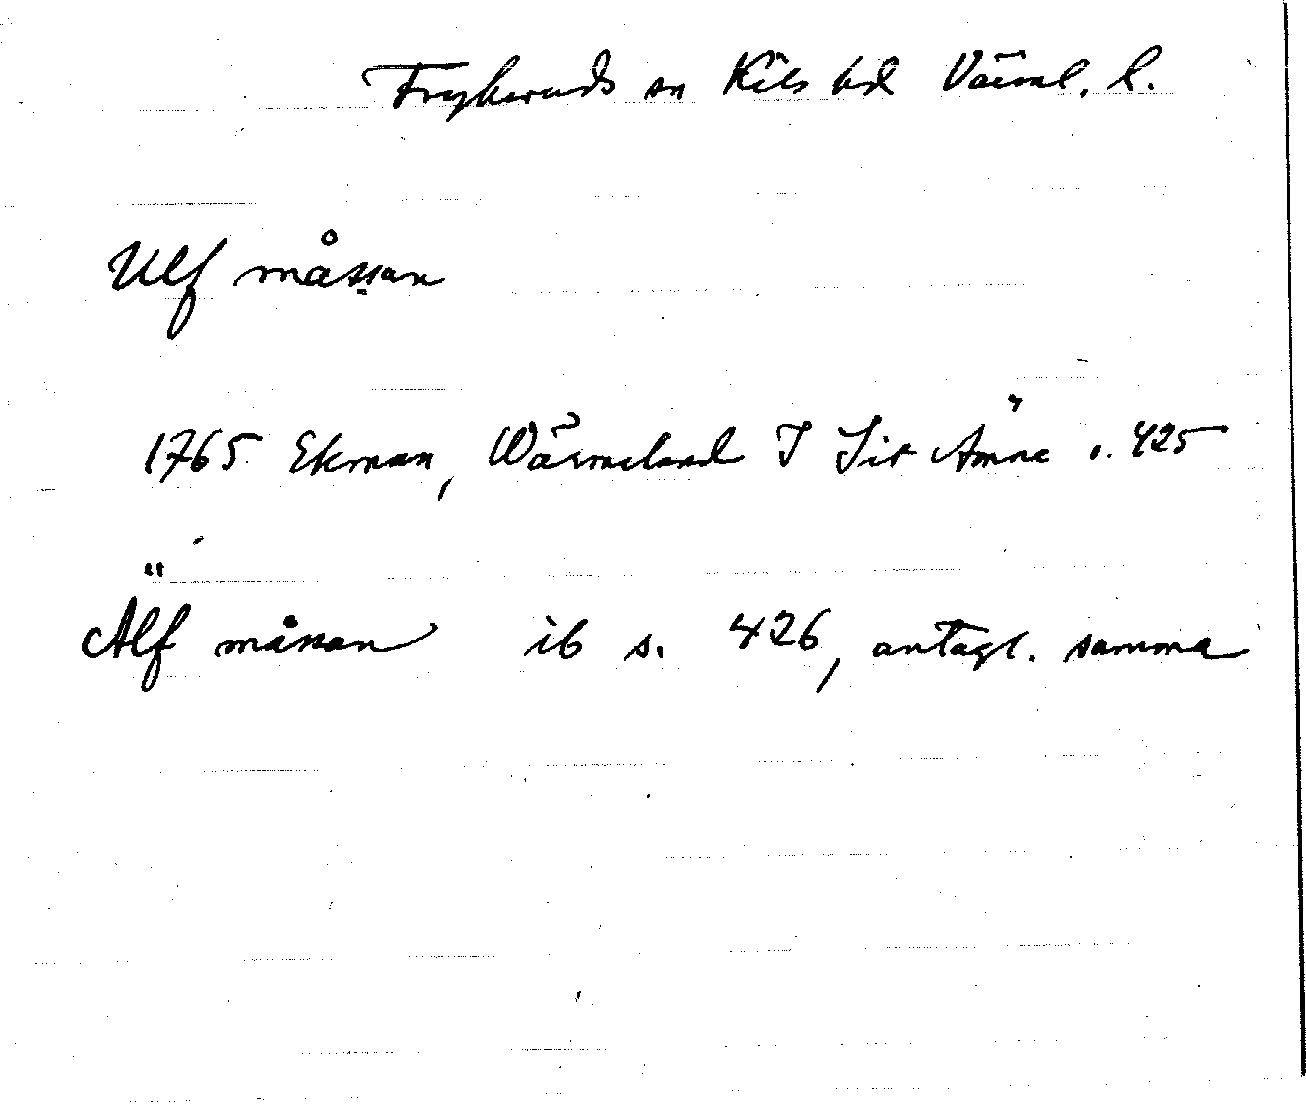 Frykeruds sn Kils hd Värml. l.
Ulf måssan
1765 Ekman, Wärmeland I Sit Ämne s. 425
Älf måssan ib s. 426, antagl. samma